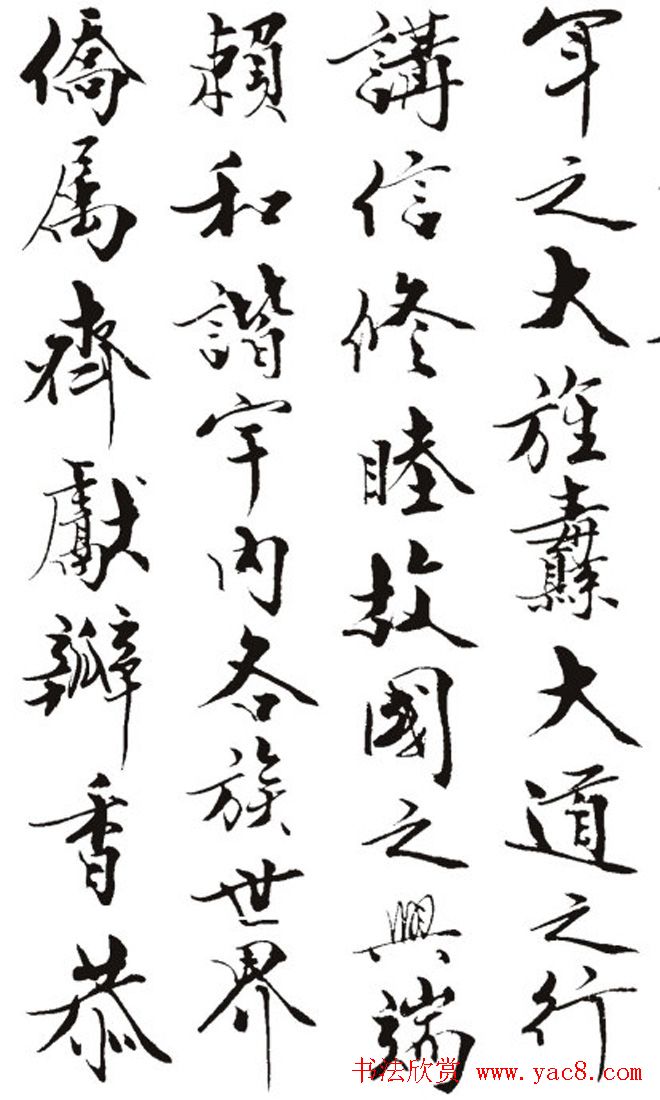 軍之大旌纛大道之行
講信修睦故國之興端
賴和諧宇内各族世界
僑属齊獻瓣香恭
书法欣赏 www.yac8.com